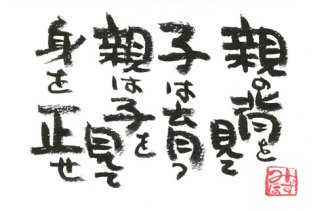 親の背を見て
子は育つ
親は子を見て
身を正せ